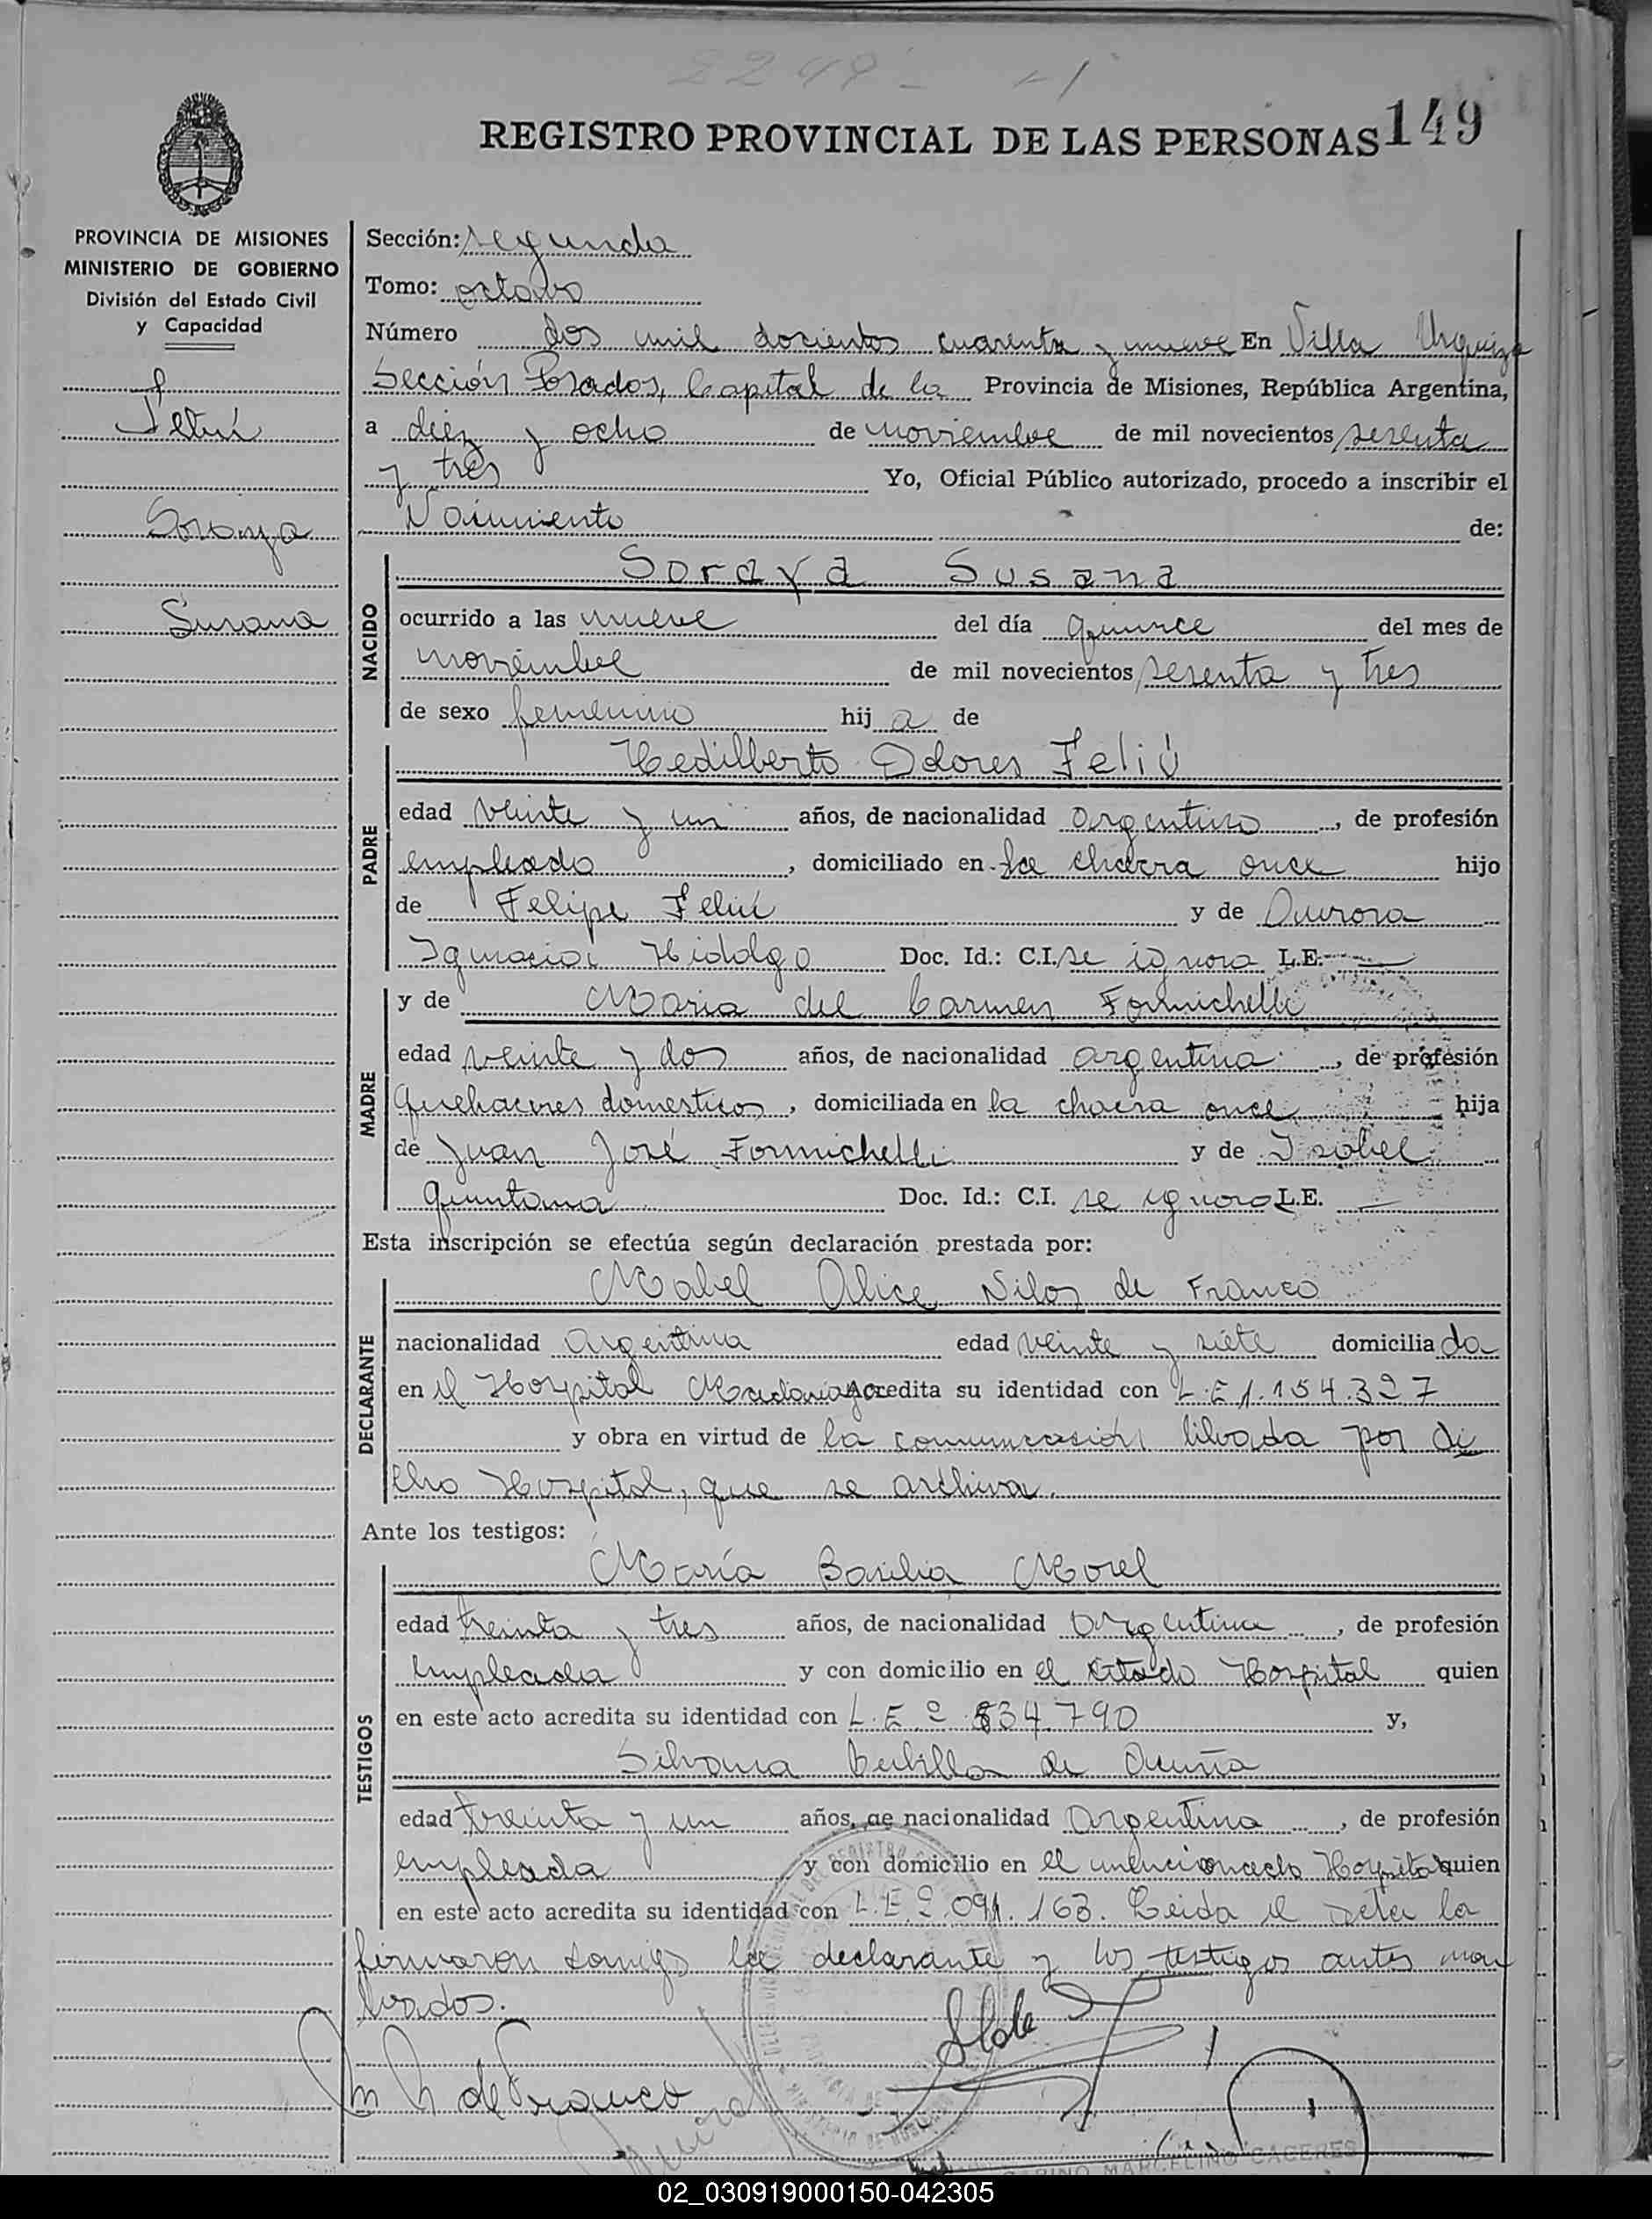 2249 -
REGISTRO PROVINCIAL DE LAS PERSONAS 149
PROVINCIA DE MISIONES
MINISTERIO DE GOBIERNO
División del Estado Civil
y Capacidad
Feliú
Soraya
Susana
Sección: segunda
Tomo: octavo
Número dos mil docientos cuarenta y nueve En Villa Urquiza
Sección Posadas, Capital de la Provincia de Misiones, República Argentina,
a diez y ocho de noviembre de mil novecientos sesenta
y tres Yo, Oficial Público autorizado, procedo a inscribir el
Nacimiento de:
NACIDO
Soraya Susana
ocurrido a las nueve del día quince del mes de
noviembre de mil novecientos sesenta y tres
de sexo femenino hija de
PADRE
Hedilberto Dolores Feliú
edad veinte y un años, de nacionalidad argentino, de profesión
empleado, domiciliado en la chacra once hijo
de Felipe Feliú y de Aurora
Ignacia Hidalgo Doc. Id.: C.I. se ignora L.E. —
MADRE
y de Maria del Carmen Formichelli
edad veinte y dos años, de nacionalidad argentina, de profesión
quehaceres domesticos, domiciliada en la chacra once hija
de Juan José Formichelli y de Isabel
Quintana Doc. Id.: C.I. se ignora L.E. —
Esta inscripción se efectúa según declaración prestada por:
DECLARANTE
Mabel Alice de Franco
nacionalidad argentina edad veinte y siete domiciliada
en el Hospital Madariaga acredita su identidad con L.E 1.154.327
y obra en virtud de la comunicasión librada por di
cho Hospital, que se archiva.
Ante los testigos:
TESTIGOS
María Basilia Morel
edad treinta y tres años, de nacionalidad argentina, de profesión
empleada y con domicilio en el citado Hospital quien
en este acto acredita su identidad con L.E 2 834.790 y,
Silvana de Acuña
edad treinta y un años, de nacionalidad argentina, de profesión
empleada y con domicilio en el mencionado Hospital quien
en este acto acredita su identidad con L.E. 2.091.163. Leida el acta la
firmaron conmigo la declarante y los testigos antes nom
brados.
de Franco
MARCELINO CACERES
02_030919000150-042305